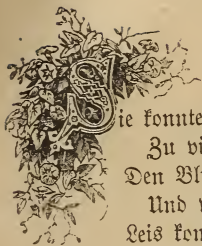 Sie konnte
Zu vi
Den Bl
Und
Leis kon